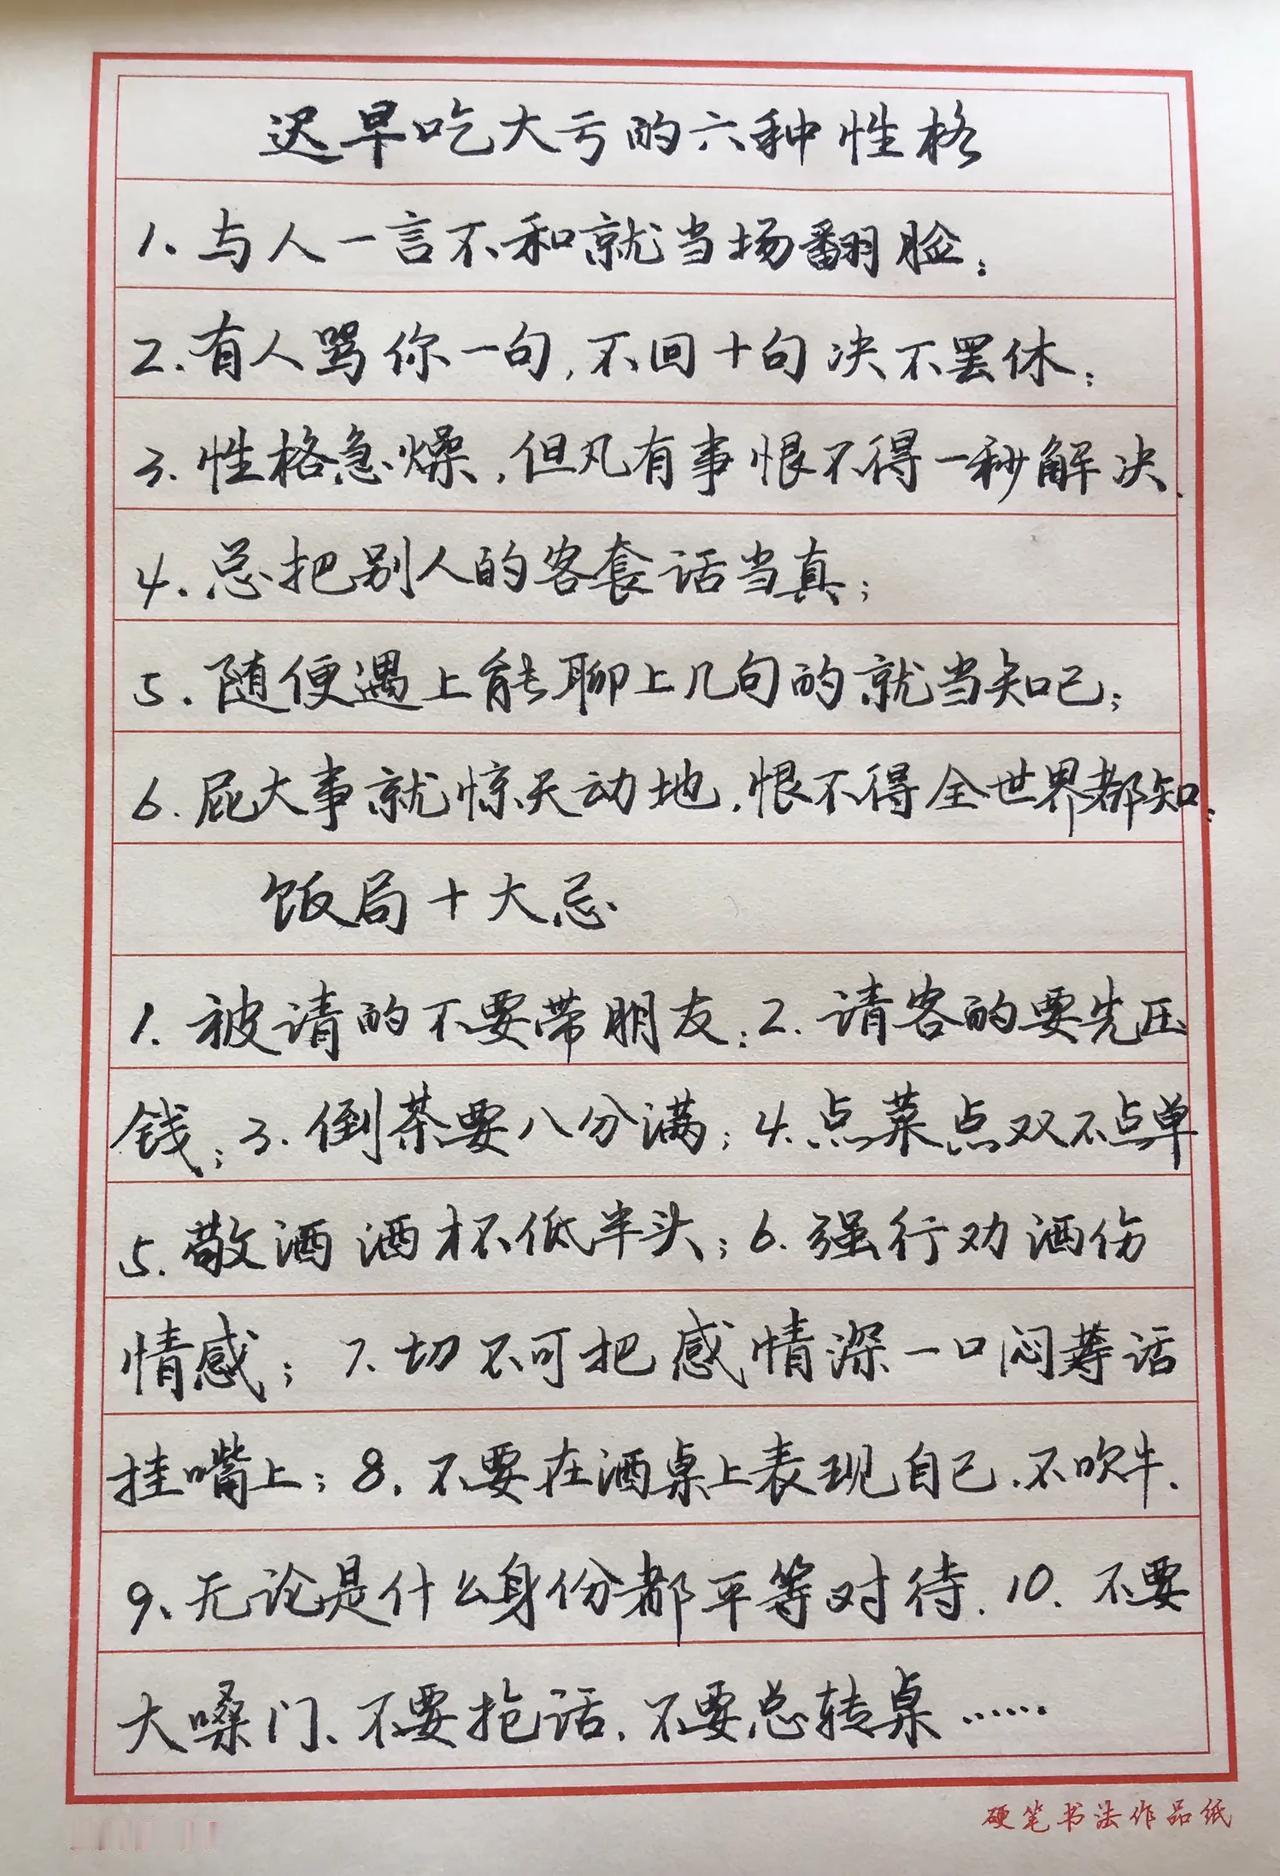 迟早吃大亏的六种性格
1、与人一言不和就当场翻脸;
2.有人骂你一句,不回十句决不罢休;
3.性格急燥,但凡有事恨不得一秒解决.
4.总把别人的客套话当真;
5.随便遇上能聊上几句的就当知己;
6.屁大事就惊天动地,恨不得全世界都知;
饭局十大忌
1.被请的不要带朋友;2.请客的要先压
钱;3.倒茶要八分满;4.点菜点双不点单
5.敬酒酒杯低半头;6.强行劝酒伤
情感;7.切不可把感情深一口闷等话
挂嘴上;8.不要在酒桌上表现自己.不吹牛.
9、无论是什么身份都平等对待.10.不要
大嗓门、不要抢话.不要总转桌……
硬笔书法作品纸